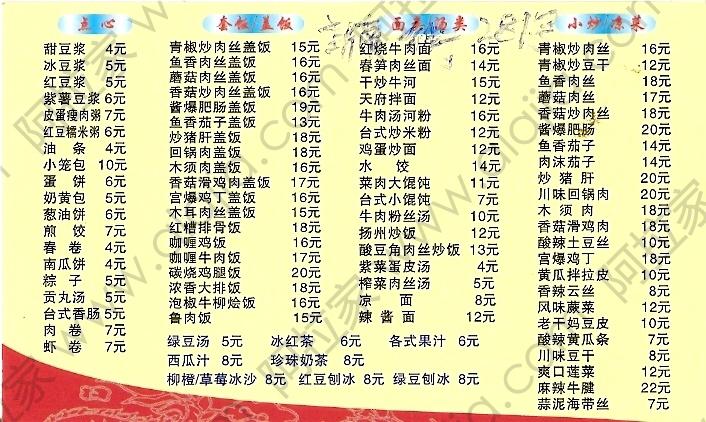 点心
甜豆浆 4元
冰豆浆 5元
红豆浆 5元
紫薯豆浆 6元
皮蛋瘦肉粥 7元
红豆糯米粥 6元
油条 4元
小笼包 10元
蛋饼 6元
奶黄包 5元
葱油饼 6元
煎饺 7元
春卷 4元
南瓜饼 4元
粽子 5元
贡丸汤 5元
台式香肠 5元
肉卷 7元
虾卷 7元
套饭/盖饭
青椒炒肉丝盖饭 15元
鱼香肉丝盖饭 16元
蘑菇肉丝盖饭 16元
香菇炒肉丝盖饭 16元
酱爆肥肠盖饭 19元
鱼香茄子盖饭 13元
炒猪肝盖饭 18元
回锅肉盖饭 20元
木须肉盖饭 16元
香菇滑鸡肉盖饭 17元
宫爆鸡丁盖饭 16元
木耳肉丝盖饭 15元
红糟排骨饭 18元
咖喱鸡饭 16元
咖喱牛肉饭 17元
碳烧鸡腿饭 20元
浓香大排饭 18元
泡椒牛柳烩饭 16元
鲁肉饭 15元
绿豆汤 5元 冰红茶 6元 各式果汁 6元
西瓜汁 8元 珍珠奶茶 8元
柳橙/草莓冰沙 8元 红豆刨冰 8元 绿豆刨冰 8元
红烧牛肉面 16元
春笋肉丝面 14元
干炒牛河 15元
天府拌面 12元
牛肉汤河粉 16元
台式炒米粉 12元
鸡蛋炒面 12元
水饺 14元
菜肉大馄饨 11元
台式小馄饨 7元
牛肉粉丝汤 10元
扬州炒饭 12元
酸豆角肉丝炒饭 13元
紫菜蛋皮汤 4元
榨菜肉丝汤 5元
凉面 8元
辣酱面 12元
小炒/凉菜
青椒炒肉丝 16元
青椒炒豆干 12元
鱼香肉丝 18元
蘑菇肉丝 17元
香菇炒肉丝 18元
酱爆肥肠 20元
鱼香茄子 14元
肉沫茄子 14元
炒猪肝 20元
川味回锅肉 20元
木须肉 18元
香菇滑鸡肉 18元
酸辣土豆丝 10元
宫爆鸡丁 18元
黄瓜拌拉皮 10元
香辣云丝 8元
风味蕨菜 12元
老干妈豆皮 10元
酸辣黄瓜条 7元
川味豆干 8元
爽口莲菜 12元
麻辣牛腱 22元
蒜泥海带丝 8元
阿拉家 www.alajia.com